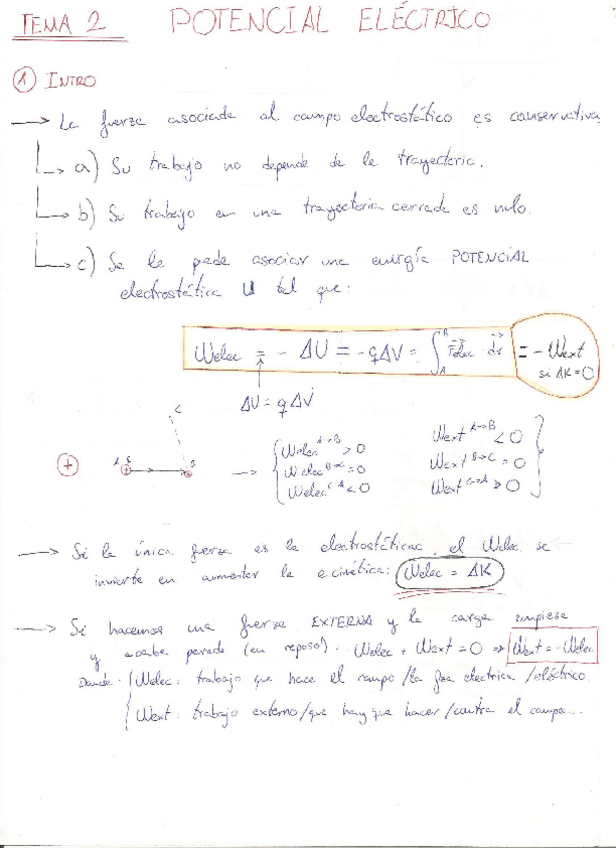 TEMA 2 POTENCIAL ELÉCTRICO
① INTRO
→ La fuerza asociada al campo electrostático es conservativa
→ a) Su trabajo no depende de la trayectoria.
→ b) Su trabajo en una trayectoria cerrada es nulo.
→ c) Se le puede asociar una energía POTENCIAL
electrostática U tal que:
Welec = - ΔU = -qΔV = ∫_A^B F⃗elec d⃗r = -Wext
si ΔK=0
ΔU = q ΔV
C
+ A B → Welec^{A→B} > 0 Wext^{A→B} < 0
Welec^{B→C} = 0 Wext^{B→C} = 0
Welec^{C→A} < 0 Wext^{C→A} > 0
→ Si la única fuerza es la electrostática, el Welec se
invierte en aumentar la e cinética: Welec = ΔK
→ Si hacemos una fuerza EXTERNA y la carga empiese
y acabe parada (en reposo): Welec + Wext = 0 ⇒ Wext = -Welec
Donde: Welec: trabajo que hace el campo/la fza electrica/eléctrico
Wext: trabajo externo/que hay que hacer/contra el campo...